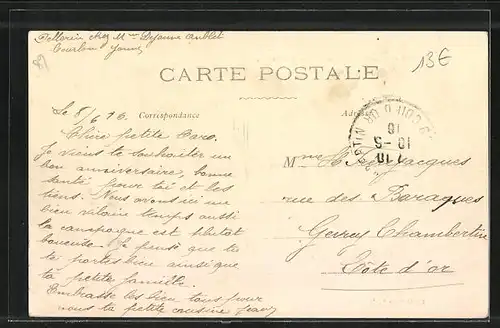 Pellerin chez Mme Dejaune Aublet
Courlon Yonne
89
13€
CARTE POSTALE
Correspondance
Le 8/6 16
Chère petite Caro.
Je viens te souhaiter un
bon anniversaire, bonne
santé pour toi et les
tiens. Nous avons ici un
bien vilain temps aussi
la campagne est plutôt
boueuse. Je pense que tu
te portes bien ainsi que
ta petite famille.
Embrasse les bien tous pour
nous ta petite cousine Jean
Mme Jacques
rue des Baraques
Gevrey Chambertin
Côte d'or